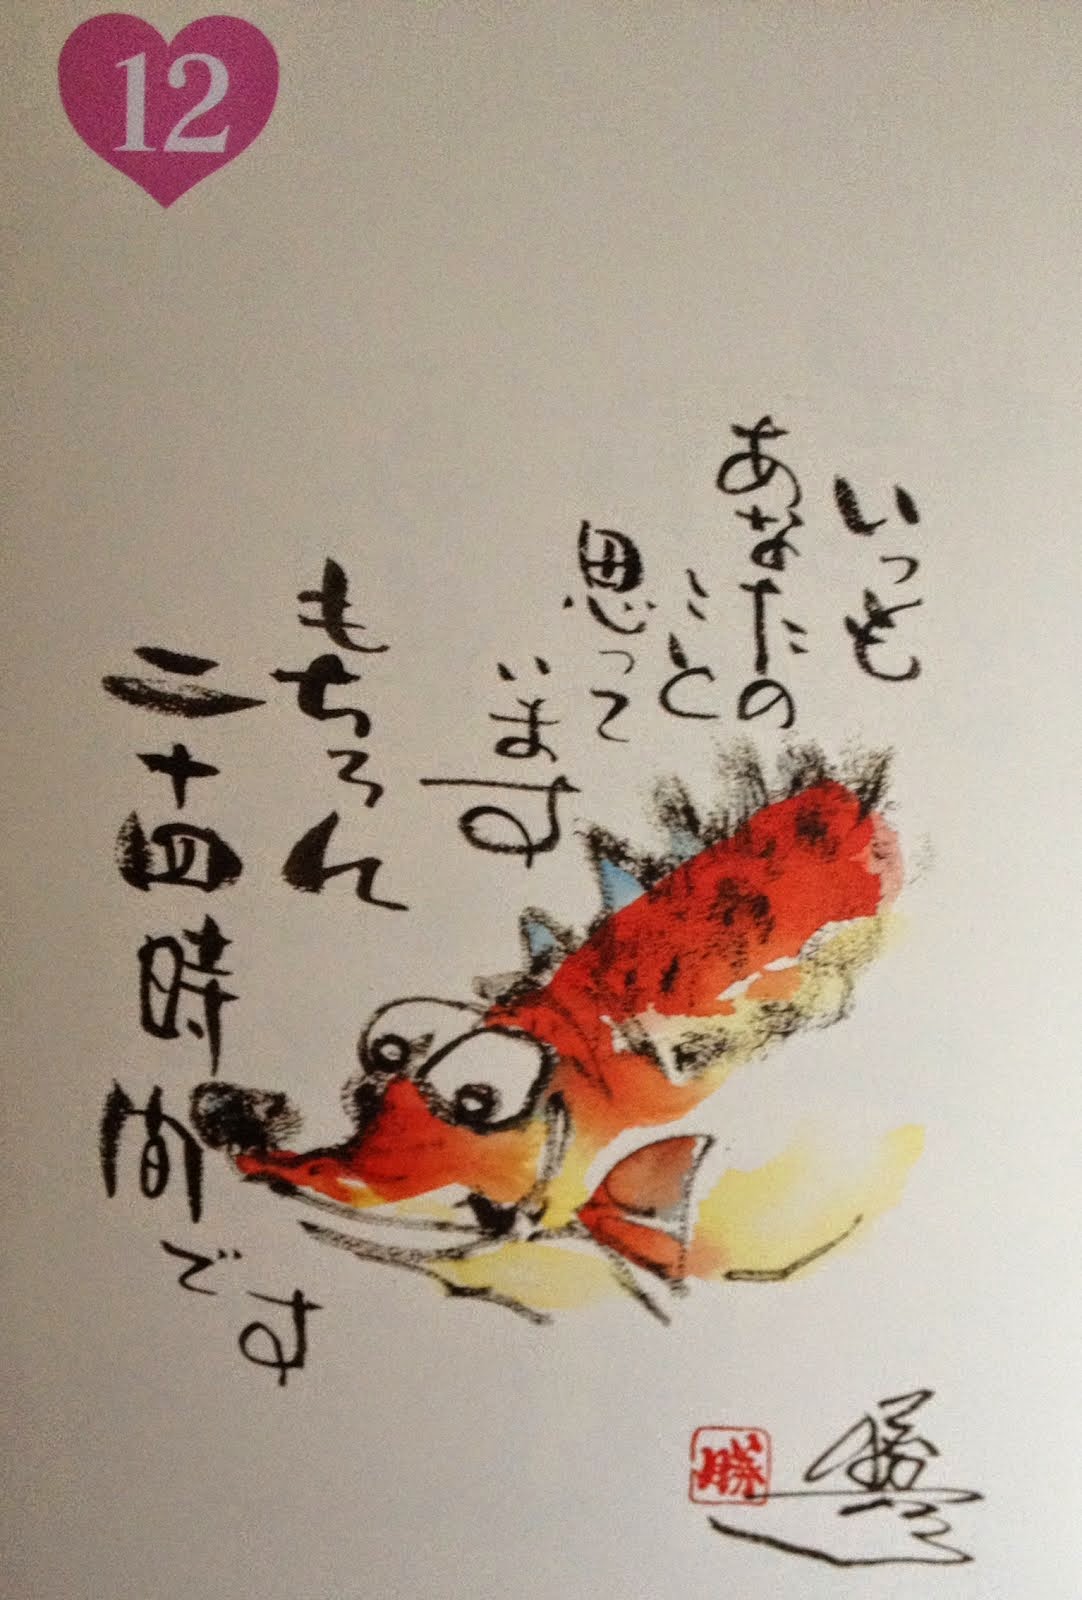 12
いつも
あなたの
こと
思って
います
もちろん
二十四時間です
勝